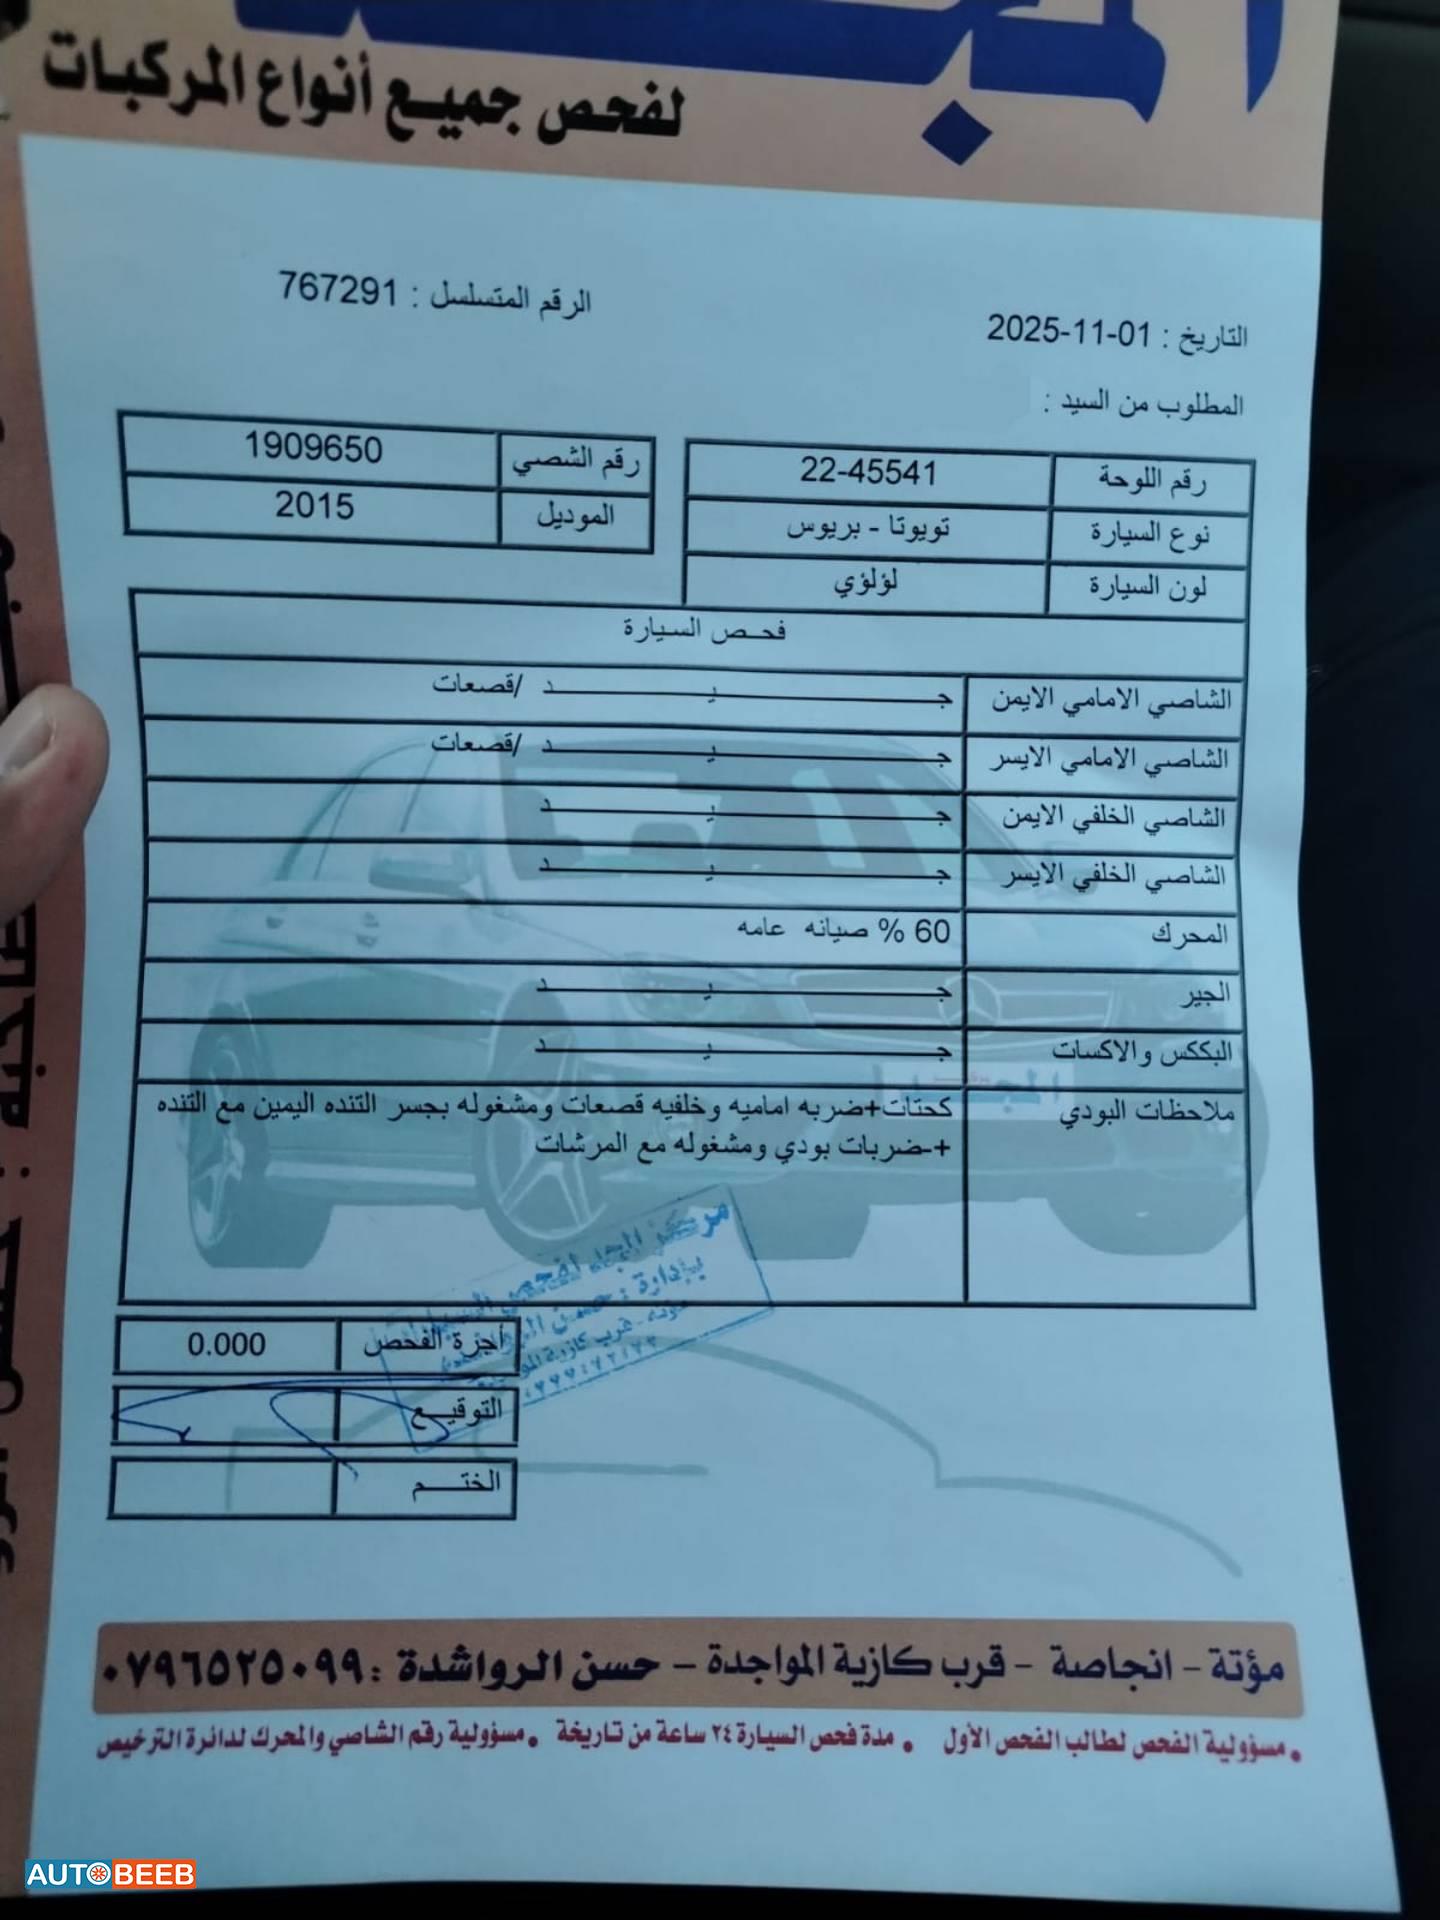 لفحص جميع أنواع المركبات
التاريخ : 01-11-2025
الرقم المتسلسل : 767291
المطلوب من السيد :
رقم اللوحة 22-45541
نوع السيارة تويوتا - بريوس
لون السيارة لؤلؤي
رقم الشصي 1909650
الموديل 2015
فحص السيارة
الشاصي الامامي الايمن جيد /قصعات
الشاصي الامامي الايسر جيد /قصعات
الشاصي الخلفي الايمن جيد
الشاصي الخلفي الايسر جيد
المحرك 60 % صيانه عامه
الجير جيد
البككس والاكسات جيد
ملاحظات البودي كحتات+ضربه اماميه وخلفيه قصعات ومشغوله بجسر التنده اليمين مع التنده
+-ضربات بودي ومشغوله مع المرشات
مركز المجد لفحص السيارات
بإدارة : حسن
مؤتة - قرب كازية
أجرة الفحص 0.000
التوقيع
الختم
مؤتة - انجاصة - قرب كازية المواجدة - حسن الرواشدة : ٠٧٩٦٥٢٥٠٩٩
• مسؤولية الفحص لطالب الفحص الأول • مدة فحص السيارة ٢٤ ساعة من تاريخة • مسؤولية رقم الشاصي والمحرك لدائرة الترخيص
AUTOBEEB